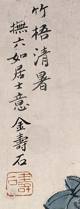 竹梧清暑
撫六如居士意金壽石
壽石